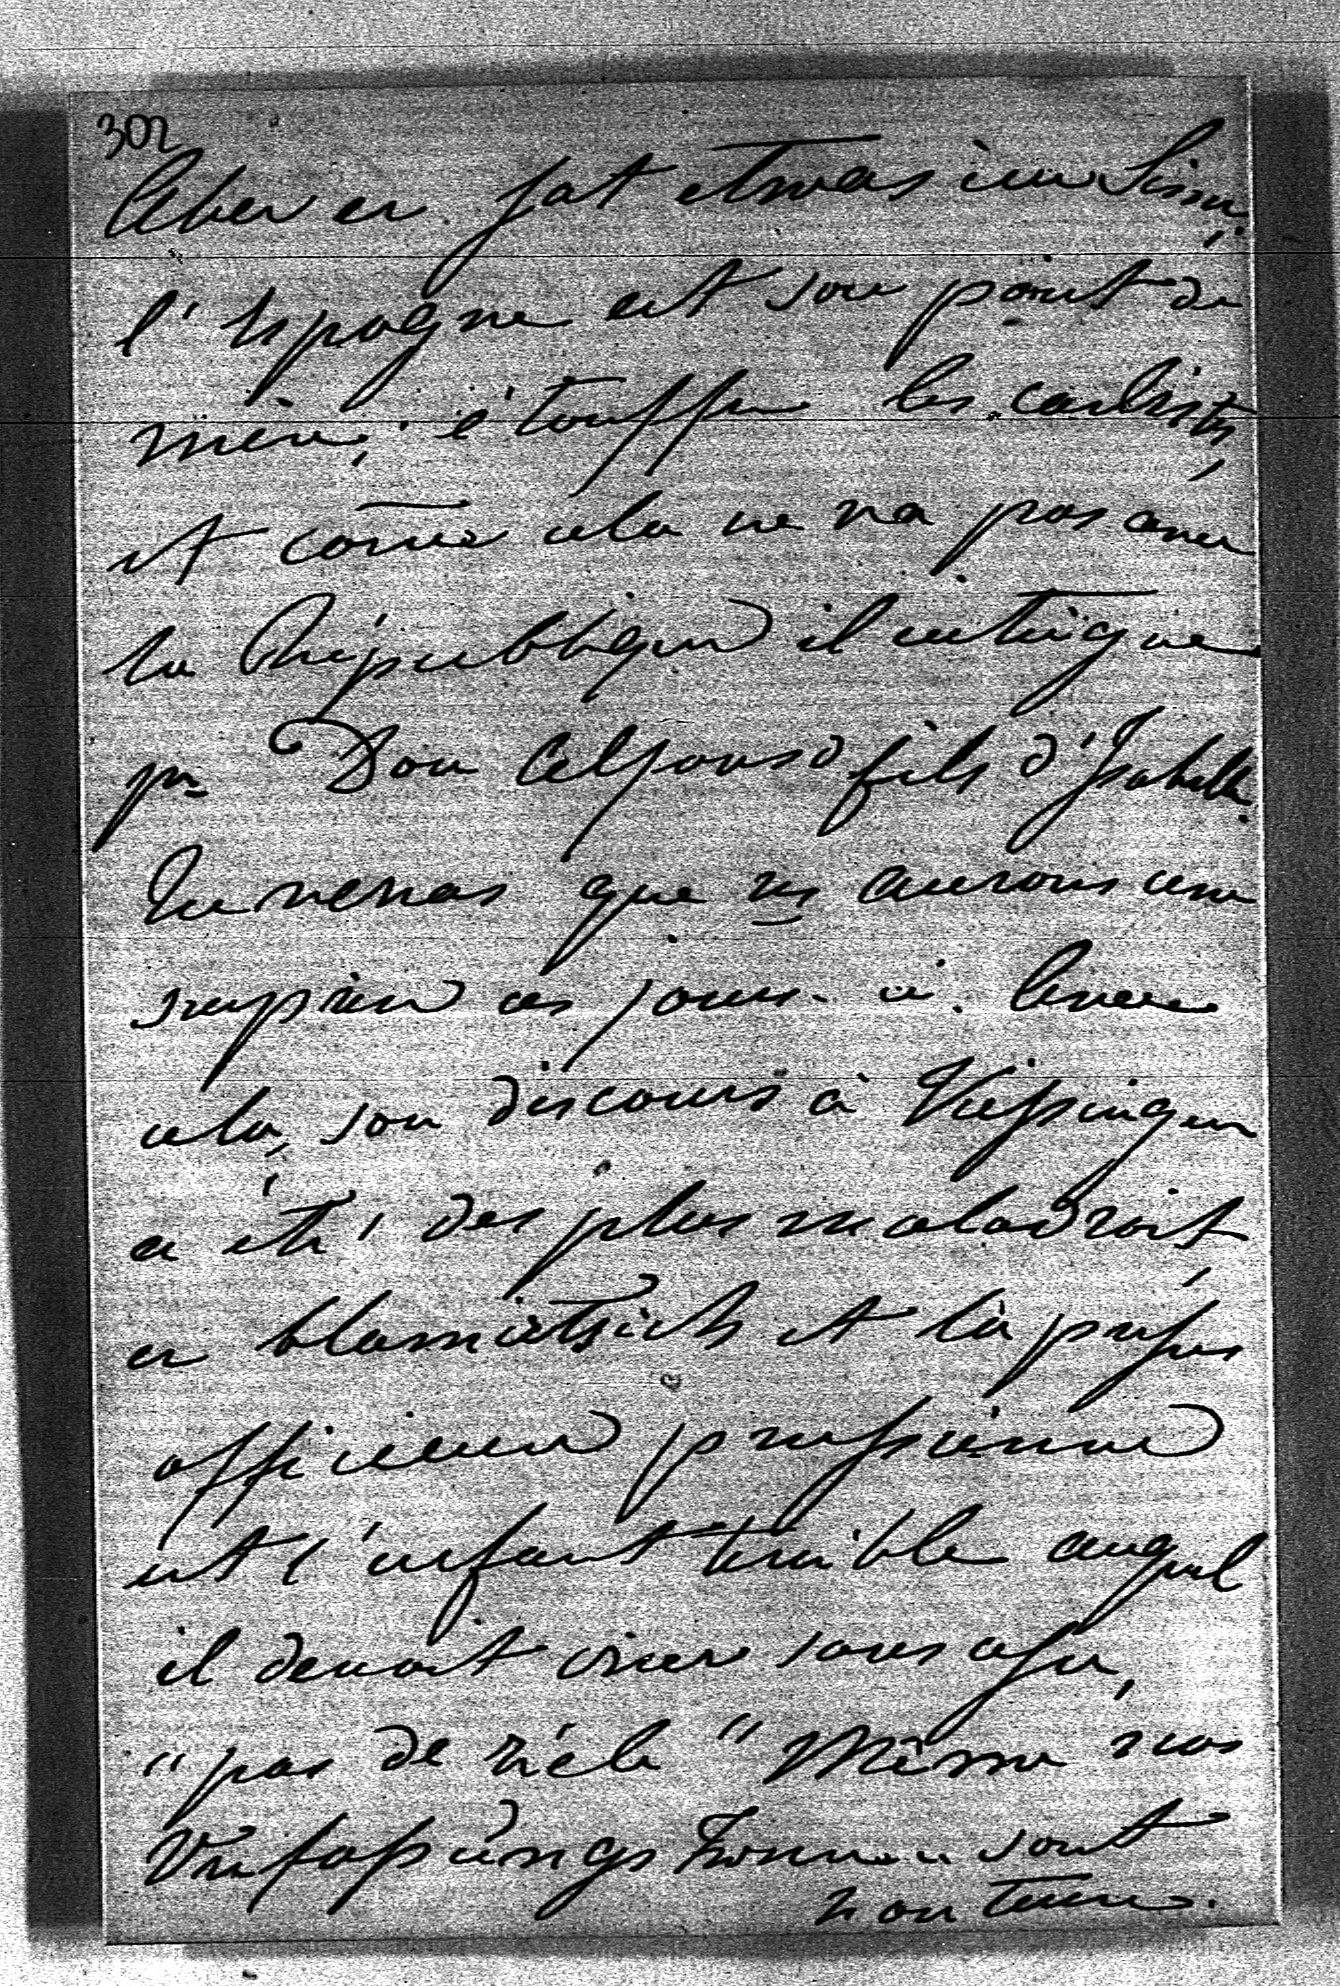 302
Aber er hat etwas im Sinn,
l'Espagne est son point de
mire, étouffer les carlistes,
et come cela ne va pas avec
la République il intrigue
pr Don Alfonso fils d'Isabelle.
Tu verras que ns aurons une
surprise ces jours-ci. Avec
cela, son discours à Kissingen
a été des plus maladroit,
er blamirt sich et la presse
officieuse prussienne
est l'enfant terrible auquel
il devait crier sans cesse,
"pas de zèle" Même nos
Verfassungs sont
honteux.